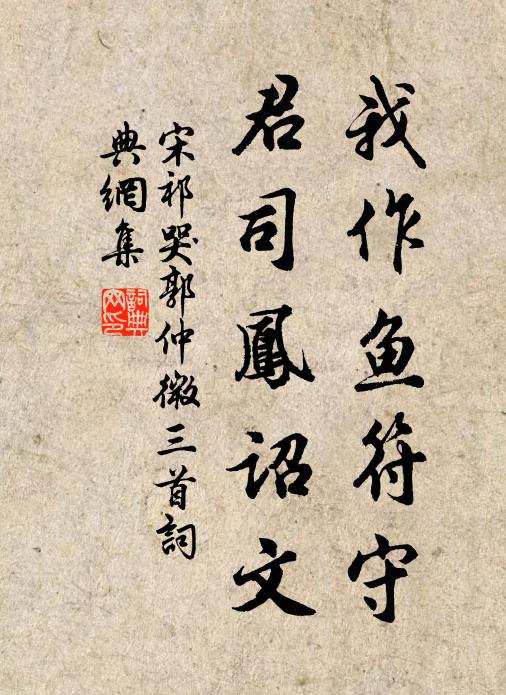 我作鱼符守
君司鳳詔文
宋祁哭郭仲微三首詞
典網集
詞典
网印